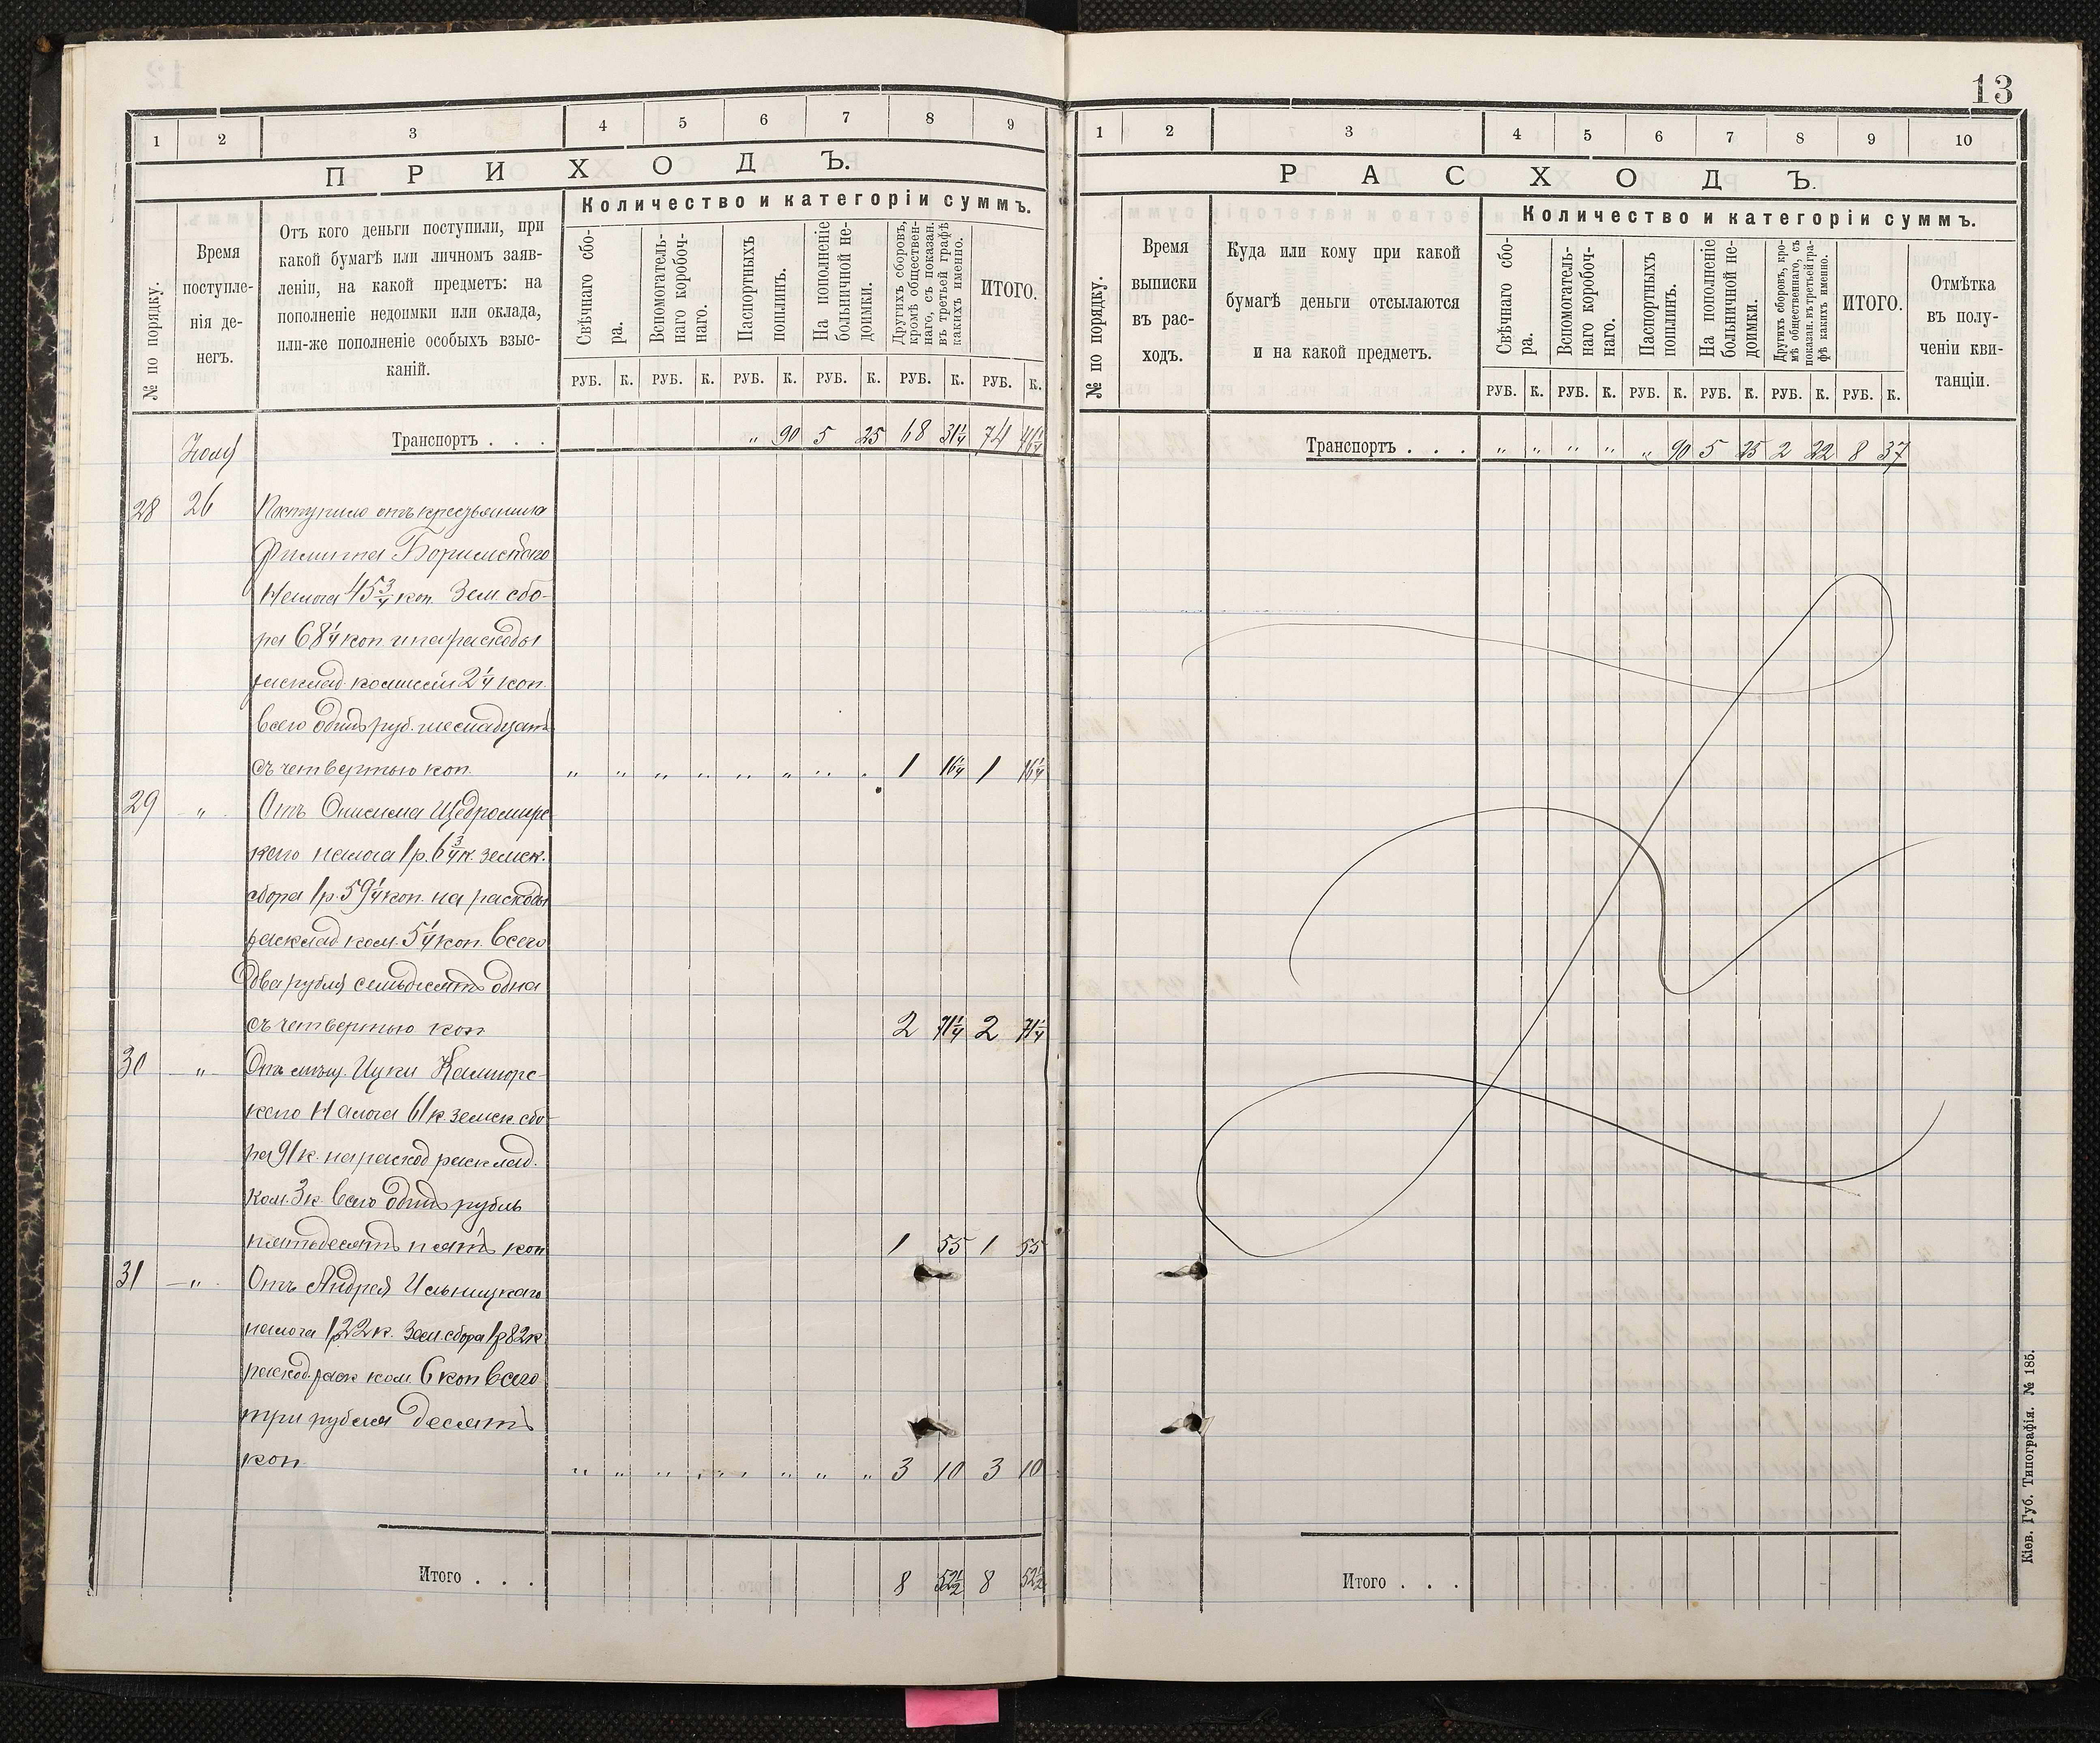 13
1 2 3 4 5 6 7 8 9
ПРИХОДЪ.
Количество и категоріи суммъ.
№ по порядку.
Время
поступле-
нія де-
негъ.
Отъ кого деньги поступили, при
какой бумагѣ или личномъ заяв-
леніи, на какой предметъ: на
пополненіе недоимки или оклада,
или-же пополненіе особыхъ взыс-
каній.
Свѣчнаго сбо-
ра.
Вспомогатель-
наго коробоч-
наго.
Паспортныхъ
пошлинъ.
На пополненіе
больничной не-
доимки.
Другихъ сборовъ,
кромѣ обществен-
наго, съ показан.
въ третьей графѣ
какихъ именно.
ИТОГО.
РУБ. К. РУБ. К. РУБ. К. РУБ. К. РУБ. К. РУБ. К.
Транспортъ . . . „ 90 5 25 68 31¼ 74 46¼
28 26 Поступило отъ крестьянина
Филиппа
Налога 45¾ коп. Зем. сбо-
ра 68¼ коп. и на расходы
расклад. коммисіи 2¼ коп.
всего одинъ руб. шеснадцать
съ четвертью коп. „ „ „ „ „ „ „ „ 1 16¼ 1 16¼
29 „ Отъ Онисима Щедромирс-
каго налога 1 р. 6¾ к. земск.
сбора 1 р. 59¼ коп. на расходы
расклад. ком. 5¼ коп. всего
два рубля семьдесятъ одна
съ четвертью коп 2 71¼ 2 71¼
30 „ Отъ мѣщ. Ицки
каго Налога 61 к земск. сбо-
ра 91 к. на расход расклад.
ком. 3 к. всего одинъ рубль
пятьдесятъ пять коп 1 55 1 55
31 „ Отъ Андрея Ильницкаго
налога 1 р 22 к. Зем. сбора 1 р 82 к.
расход. раск ком. 6 коп всего
три рубля десять
коп „ „ „ „ „ „ „ „ 3 10 3 10
Итого . . . 8 52½ 8 52½
1 2 3 4 5 6 7 8 9 10
РАСХОДЪ.
Количество и категоріи суммъ.
№ по порядку.
Время
выписки
въ рас-
ходъ.
Куда или кому при какой
бумагѣ деньги отсылаются
и на какой предметъ.
Свѣчнаго сбо-
ра.
Вспомогатель-
наго коробоч-
наго.
Паспортныхъ
пошлинъ.
На пополненіе
больничной не-
доимки.
Другихъ сборовъ, кро-
мѣ общественнаго, съ
показан. въ третьей гра-
фѣ какихъ именно.
ИТОГО.
Отмѣтка
въ полу-
ченіи кви-
танціи.
РУБ. К. РУБ. К. РУБ. К. РУБ. К. РУБ. К. РУБ. К.
Транспортъ . . . „ „ „ „ „ 90 5 25 2 22 8 37
Итого . . .
Кіев. Губ. Типографія. № 185.